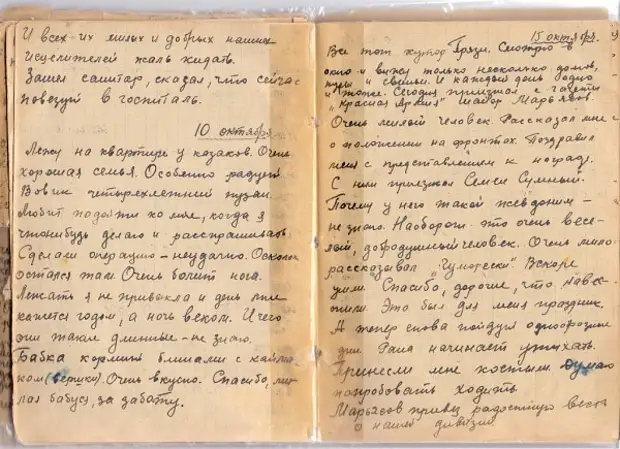 И всех их милых и добрых наших
исцелителей жаль кидать.
Зашел санитар, сказал, что сейчас
повезут в госпиталь.
10 октября.
Лежу на квартире у казаков. Очень
хорошая семья. Особенно радует
Вовик четырехлетний пузан.
Любит подойти ко мне, когда я
чтонибудь делаю и расспрашивать.
Сделали операцию - неудачно. Осколок
остался там. Очень болит нога.
Лежать я не привыкла и день мне
кажется годом, а ночь веком. И чего
они такие длинные - не знаю.
Бабка кормит блинами с кайма-
ком (вершки). Очень вкусно. Спасибо, ми-
лая бабуся, за заботу.
15 октября.
Все тот хутор Грязи. Смотрю в
окно и вижу только несколько домов,
и свиньи. И каждый день одно
и тоже. Сегодня приезжал с газеты
"Красная Армия" майор Марьясов.
Очень милый человек. Рассказал мне
о положении на фронтах. Поздравил
меня с представлением к награде.
С ним приезжал Семен Сумный.
Почему у него такой псевдоним -
не знаю. Наоборот это очень весе-
лый, добродушный человек. Очень мило
рассказывал "Гуморески". Вскоре
ушли. Спасибо, дорогие, что навес-
тили. Это был для меня праздник.
А теперь снова пойдут однообразные
дни. Рана начинает утихать.
Принесли мне костыли. Думаю
попробовать ходить.
Марьясов привез радостную весть
о нашей дивизии